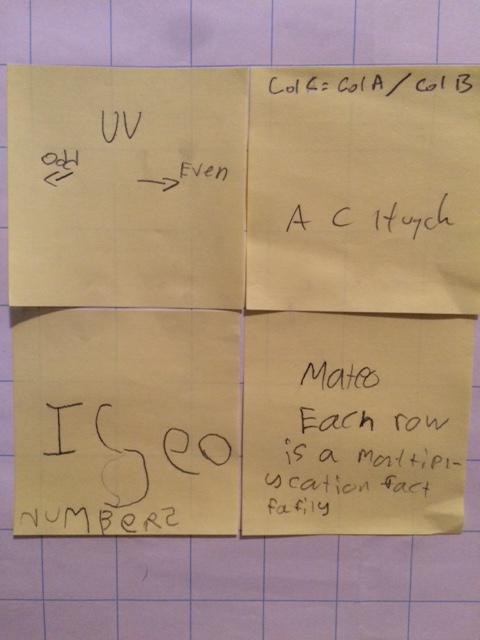 UV
Odd
Even
Col C = Col A / Col B
A C
I see
NUMBERS
Mateo
Each row
is a moltipl-
ycation fact
fafily